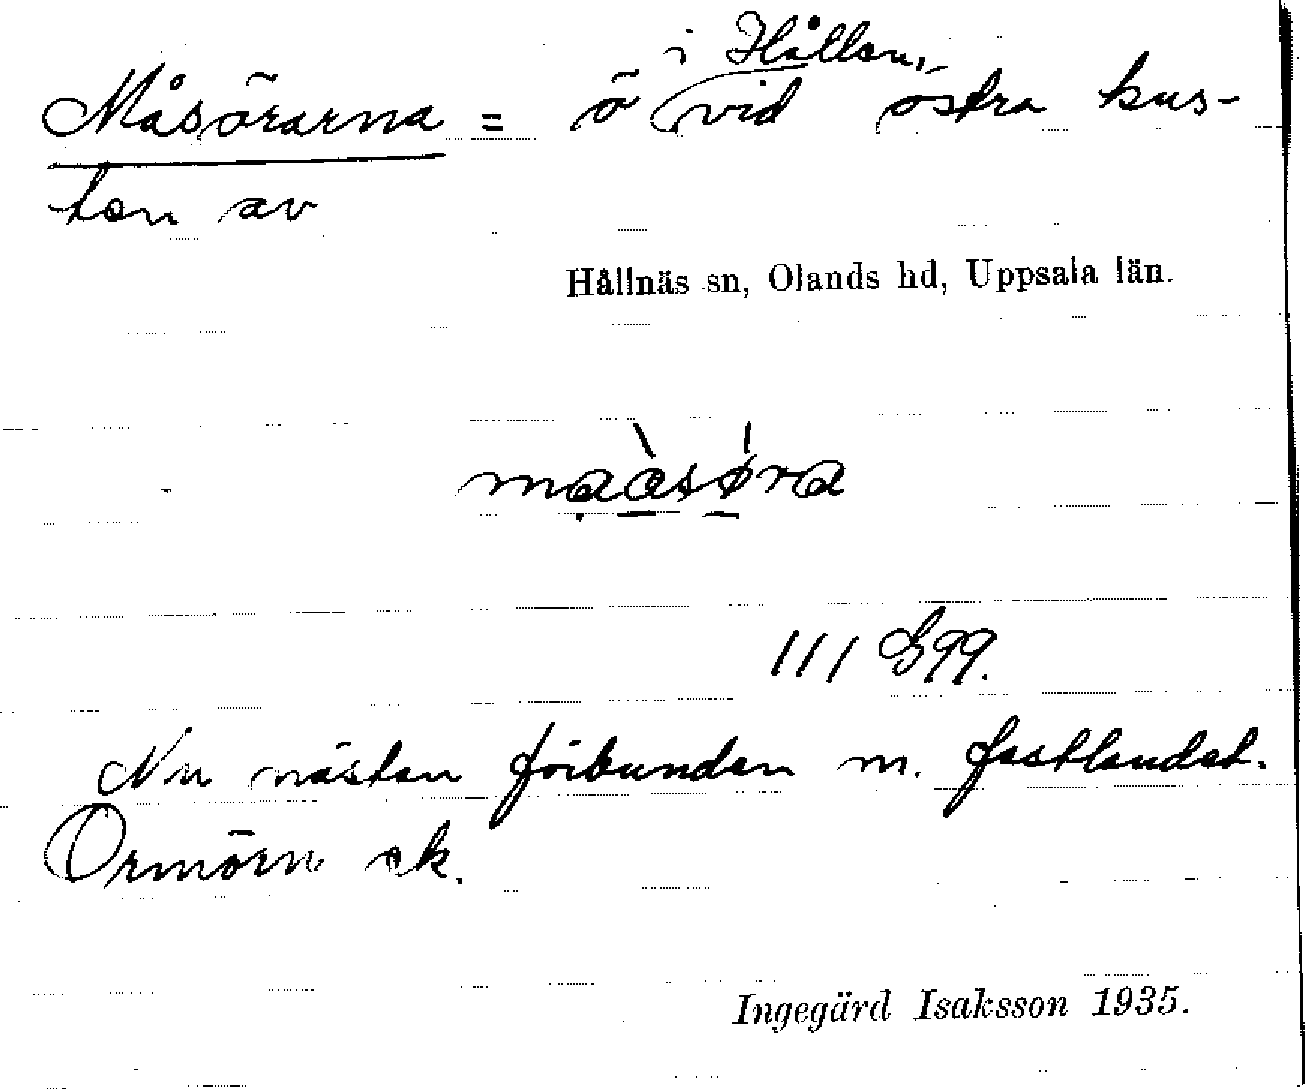 i Hållen,
Måsörarna = ö vid östra kus-
ten av
Hållnäs sn, Olands hd, Uppsala län.
maàsø̀ra
111 G99.
Nu nästan förbunden m. fastlandet.
Ormörn ek.
Ingegärd Isaksson 1935.